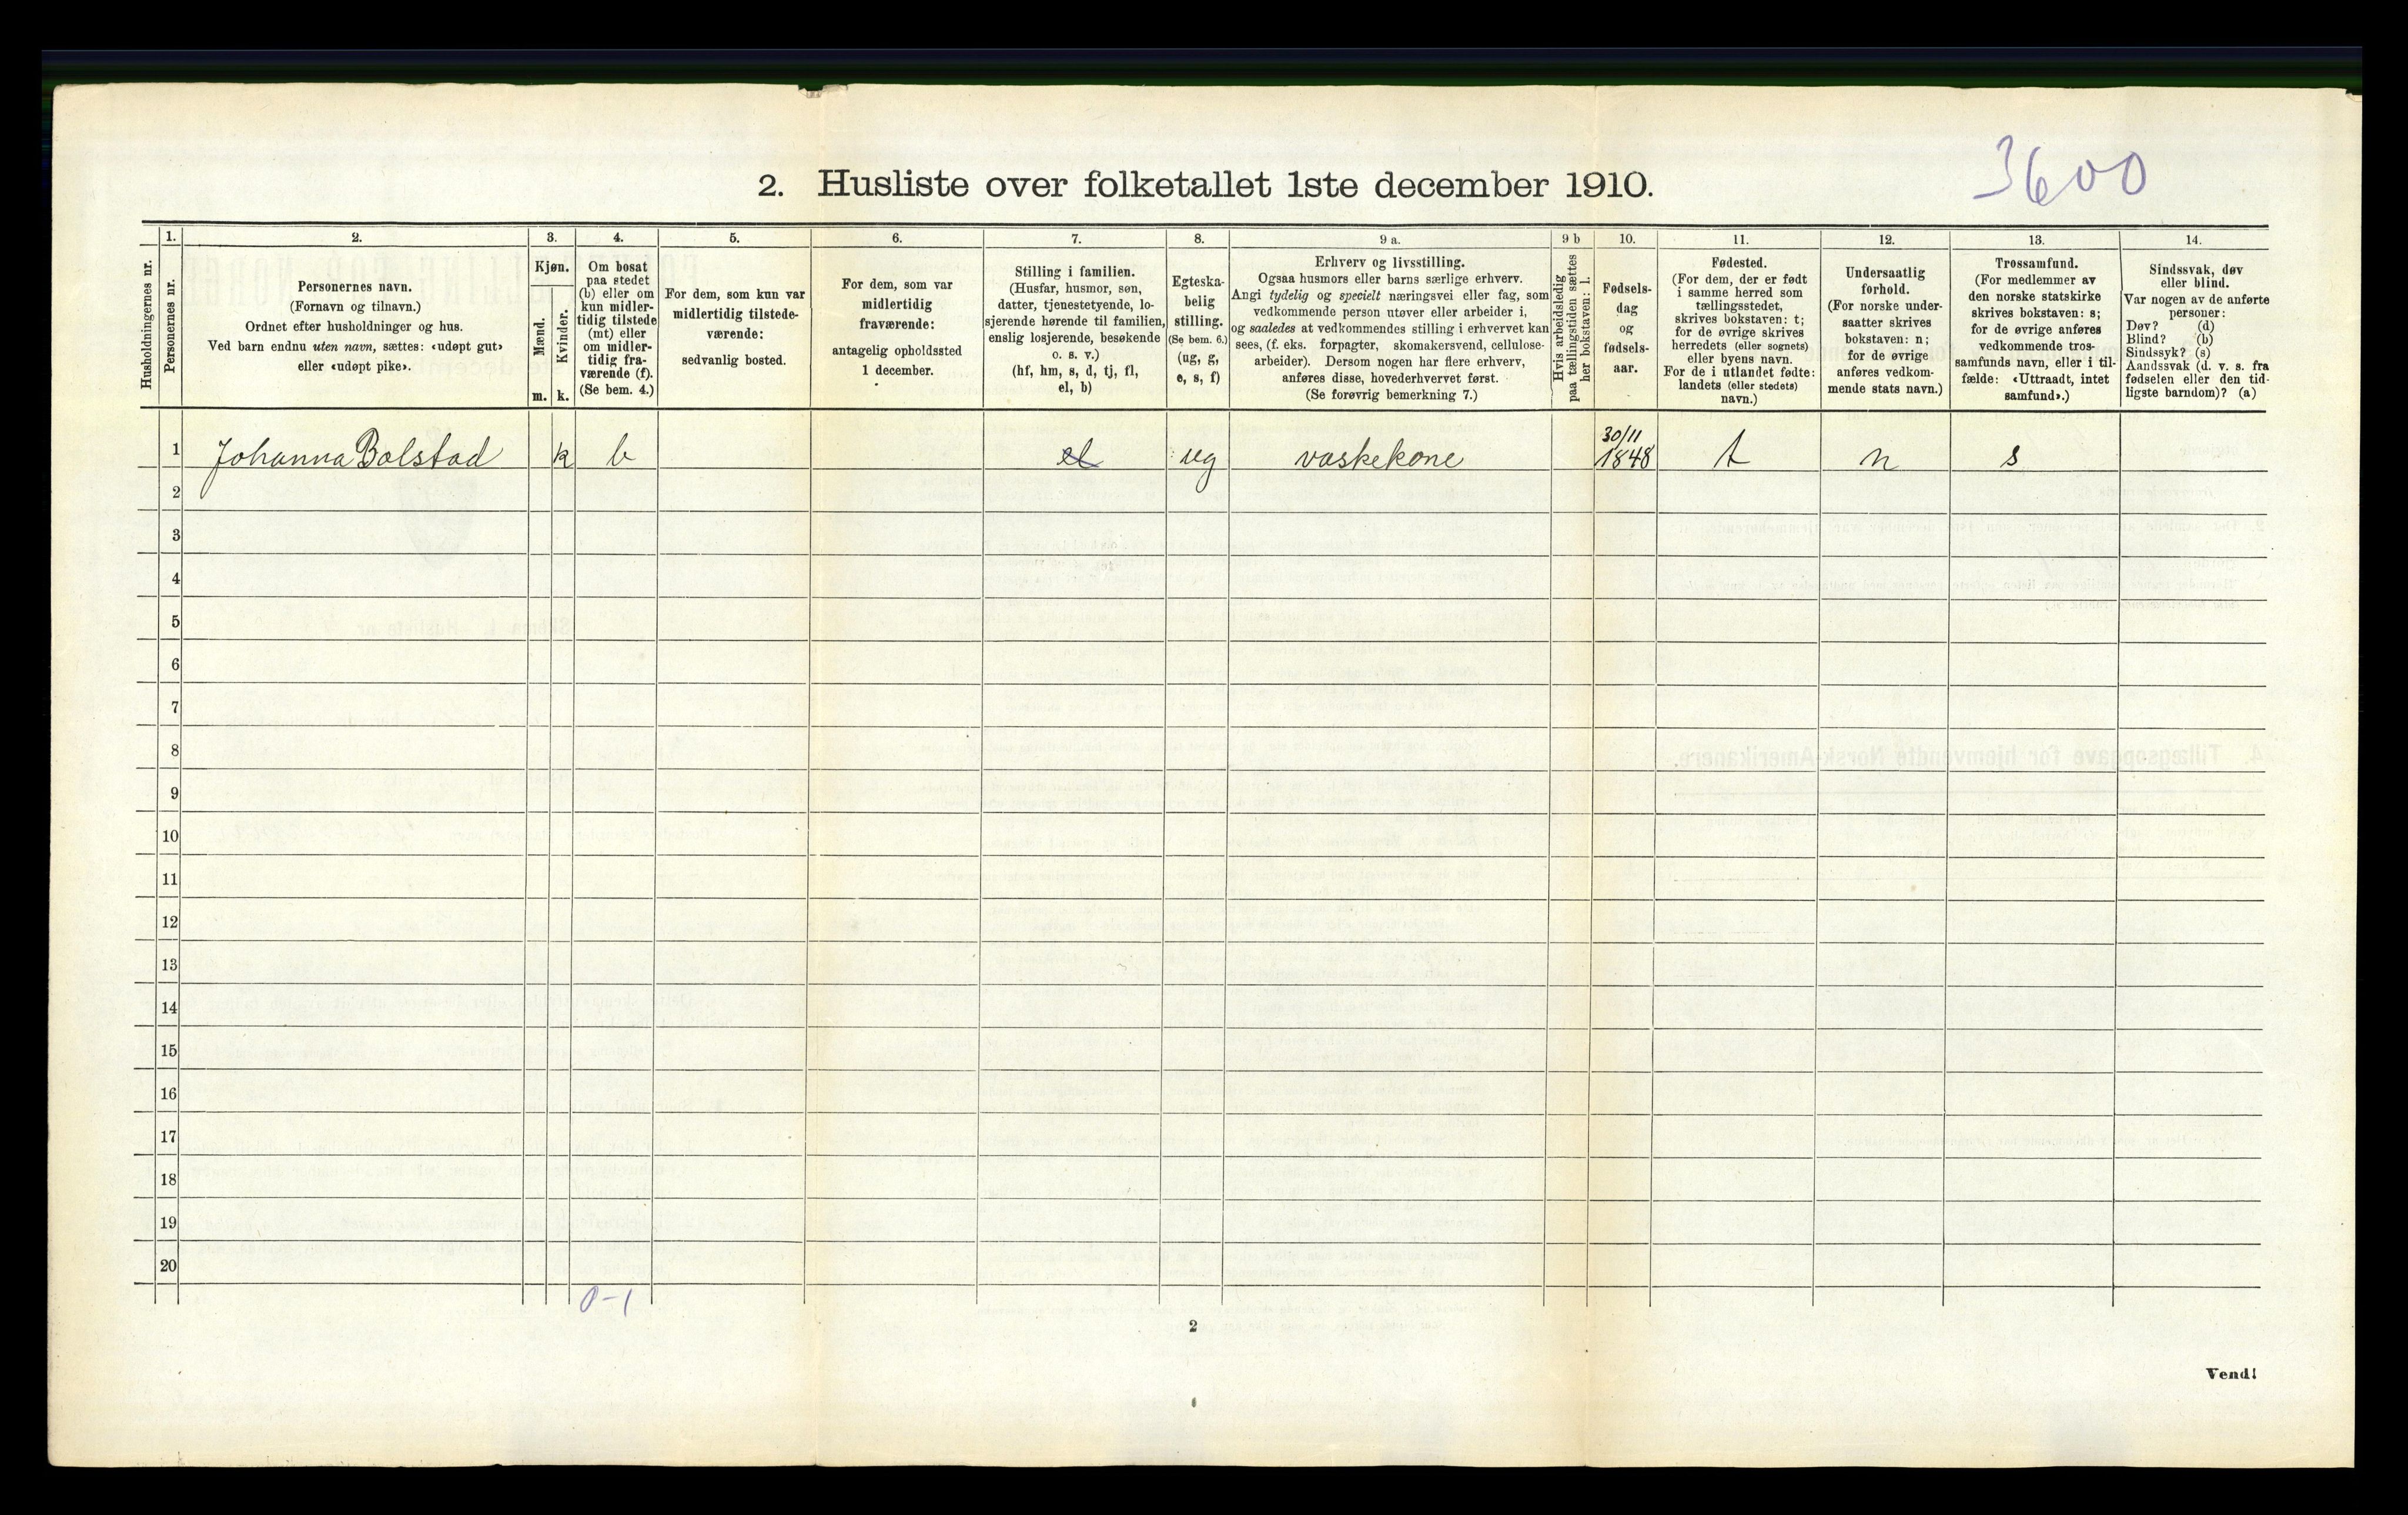 3600
2. Husliste over folketallet 1ste december 1910.
1. 2. 3. 4. 5. 6. 7. 8. 9 a. 9 b 10. 11. 12. 13. 14.
Husholdningernes nr.
Personernes nr.
Personernes navn.
(Fornavn og tilnavn.)
Ordnet efter husholdninger og hus.
Ved barn endnu uten navn, sættes: «udøpt gut»
eller «udøpt pike».
Kjøn.
Mænd.
Kvinder.
m. k.
Om bosat
paa stedet
(b) eller om
kun midler-
tidig tilstede
(mt) eller
om midler-
tidig fra-
værende (f).
(Se bem. 4.)
For dem, som kun var
midlertidig tilstede-
værende:
sedvanlig bosted.
For dem, som var
midlertidig
fraværende:
antagelig opholdssted
1 december.
Stilling i familien.
(Husfar, husmor, søn,
datter, tjenestetyende, lo-
sjerende hørende til familien,
enslig losjerende, besøkende
o. s. v.)
(hf, hm, s, d, tj, fl,
el, b)
Egteska-
belig
stilling.
(Se bem. 6.)
(ug, g,
e, s, f)
Erhverv og livsstilling.
Ogsaa husmors eller barns særlige erhverv.
Angi tydelig og specielt næringsvei eller fag, som
vedkommende person utøver eller arbeider i,
og saaledes at vedkommendes stilling i erhvervet kan
sees, (f. eks. forpagter, skomakersvend, cellulose-
arbeider). Dersom nogen har flere erhverv,
anføres disse, hovederhvervet først.
(Se forøvrig bemerkning 7.)
Hvis arbeidsledig
paa tællingstiden sættes
her bokstaven: l.
Fødsels-
dag
og
fødsels-
aar.
Fødested.
(For dem, der er født
i samme herred som
tællingsstedet,
skrives bokstaven: t;
for de øvrige skrives
herredets (eller sognets)
eller byens navn.
For de i utlandet fødte:
landets (eller stedets)
navn.)
Undersaatlig
forhold.
(For norske under-
saatter skrives
bokstaven: n;
for de øvrige
anføres vedkom-
mende stats navn.)
Trossamfund.
(For medlemmer av
den norske statskirke
skrives bokstaven: s;
for de øvrige anføres
vedkommende tros-
samfunds navn, eller i til-
fælde: «Uttraadt, intet
samfund».)
Sindssvak, døv
eller blind.
Var nogen av de anførte
personer:
Døv? (d)
Blind? (b)
Sindssyk? (s)
Aandssvak (d. v. s. fra
fødselen eller den tid-
ligste barndom)? (a)
30/11
1 Johanna Bolstad k b el ug vaskekone 1848 t n s
2
3
4
5
6
7
8
9
10
11
12
13
14
15
16
17
18
19
20
0-1
2
Vend!